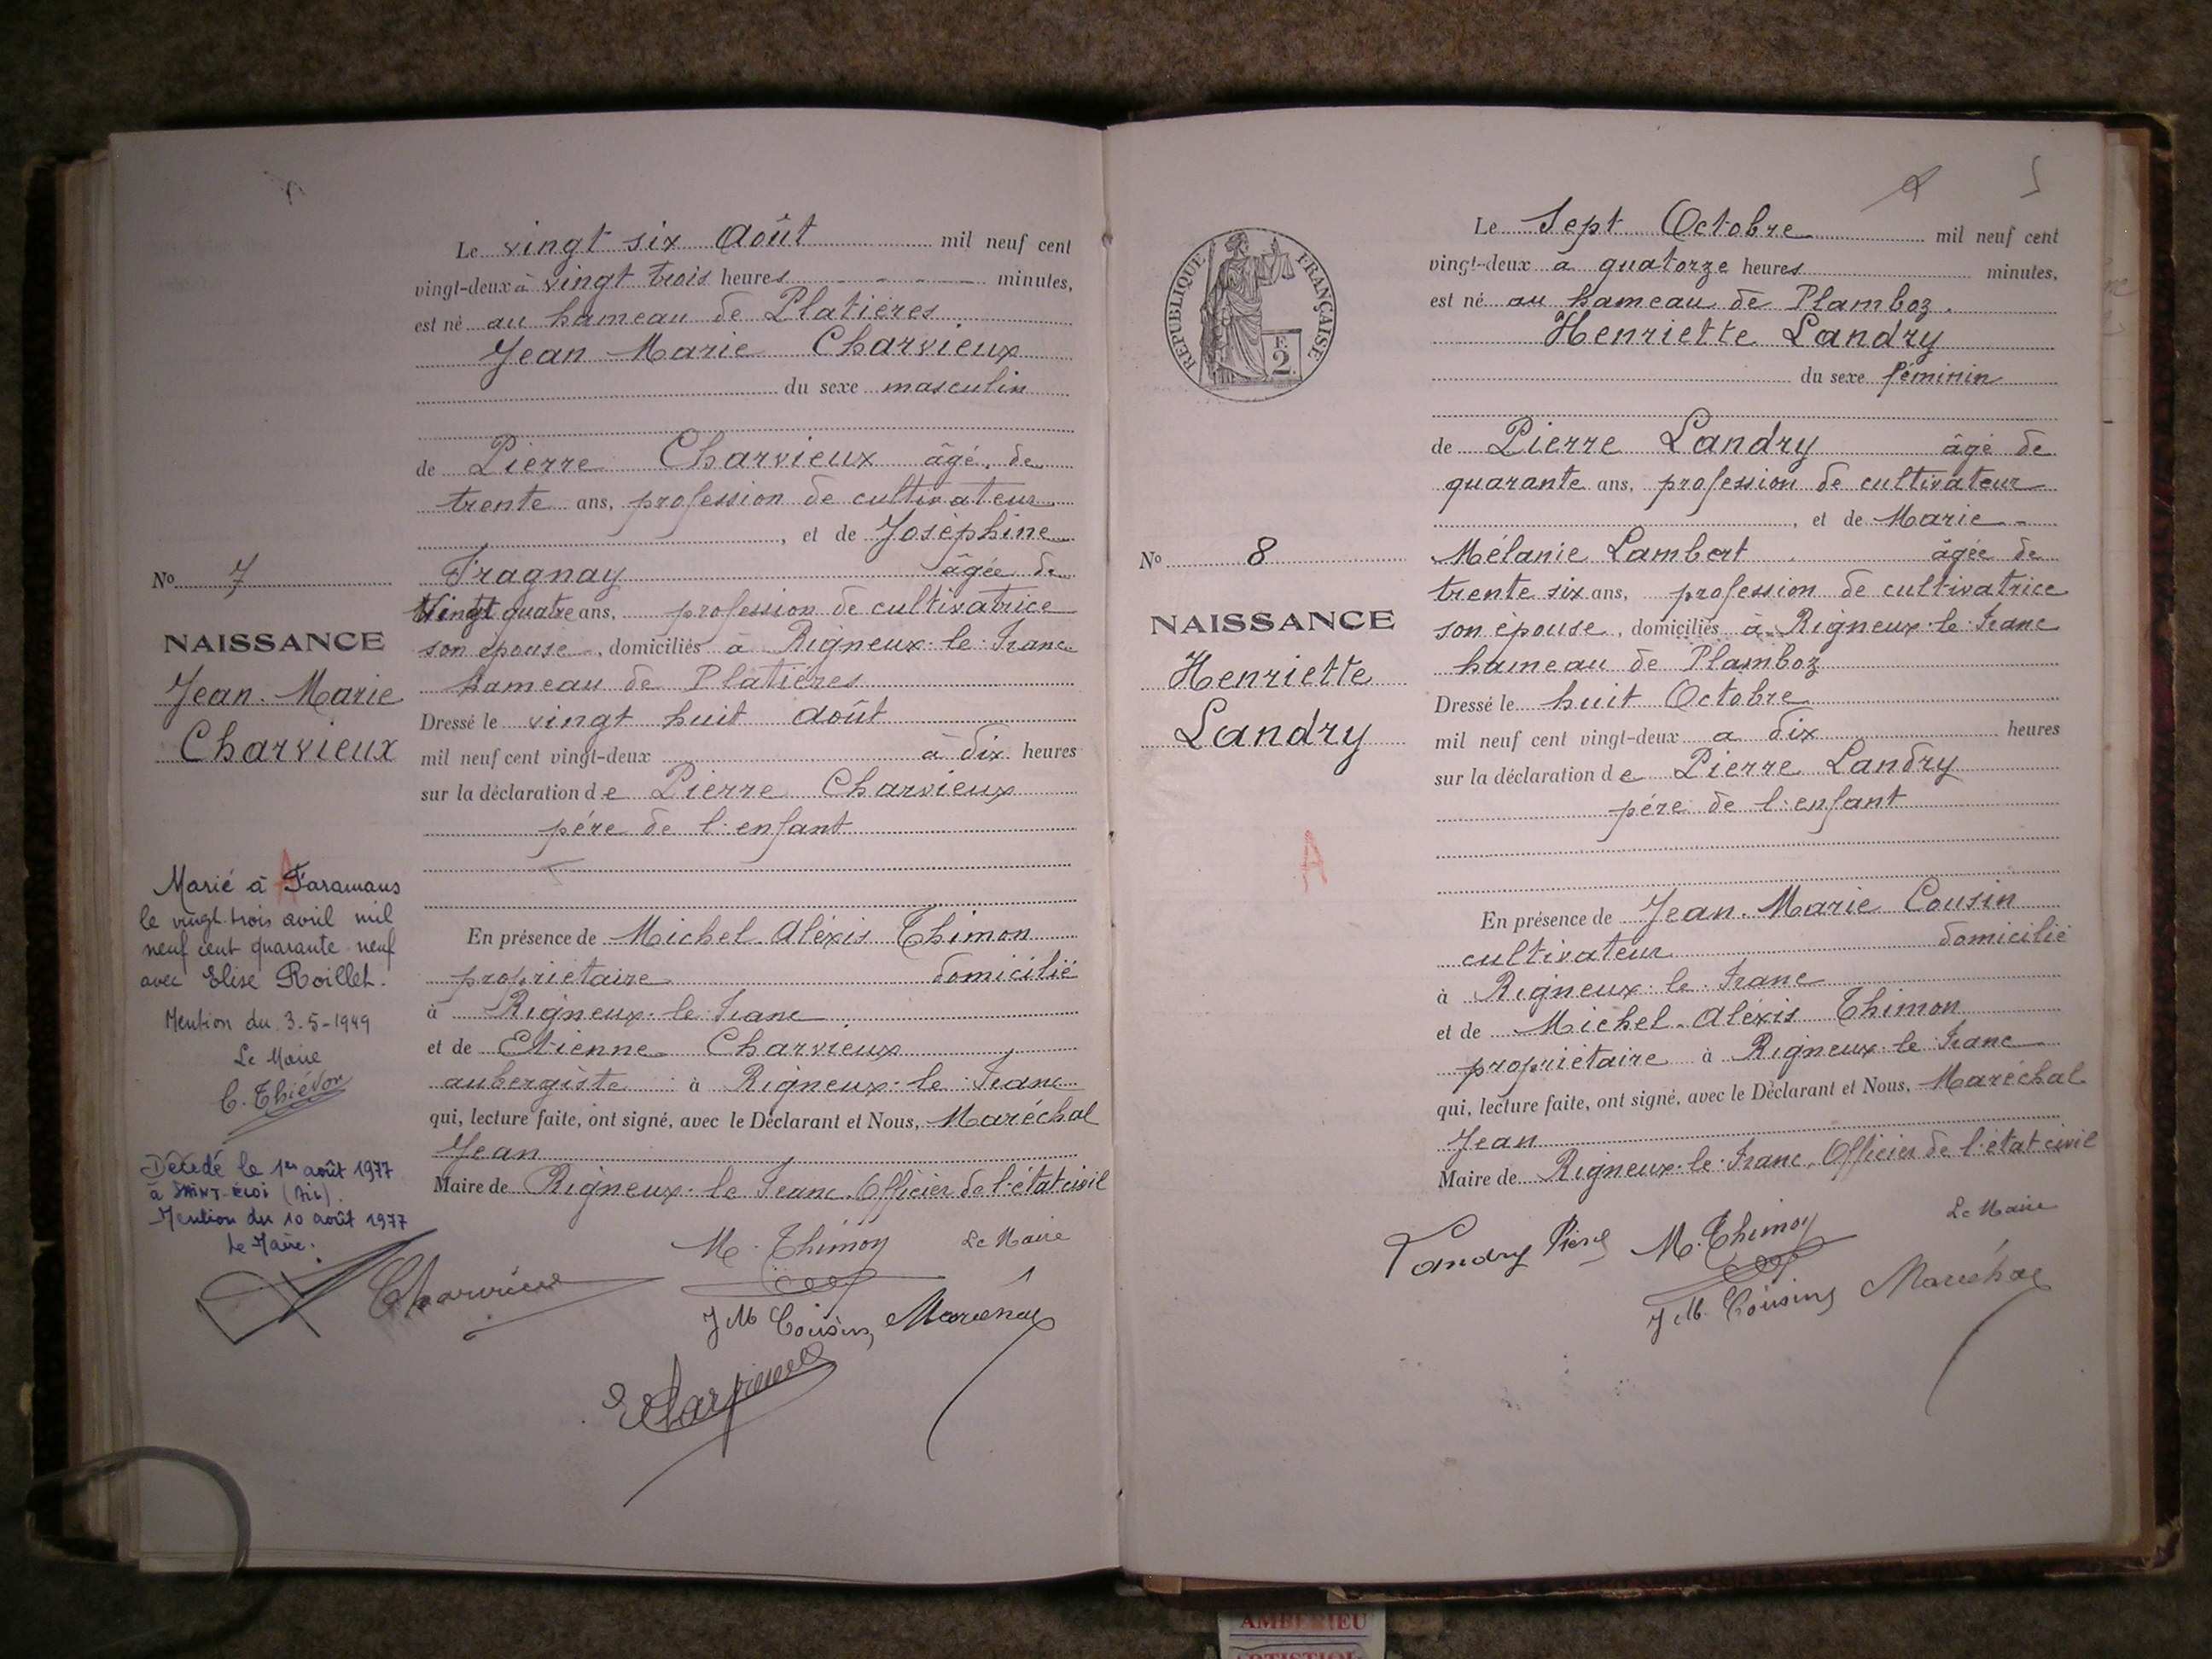 Le vingt six Août mil neuf cent
vingt-deux à vingt trois heures minutes,
est né au hameau de Platières
Jean Marie Charvieux
du sexe masculin
de Pierre Charvieux âgé de
trente ans, profession de cultivateur
, et de Josèphine
Fragnay âgée de
Vingt quatre ans, profession de cultivatrice
son épouse, domiciliés à Rigneux-le-Franc
hameau de Platières
Dressé le vingt huit Août
mil neuf cent vingt-deux à dix heures
sur la déclaration de Pierre Charvieux
père de l'enfant
En présence de Michel Aléxis Thimon
propriétaire domicilié
à Rigneux-le-Franc
et de Etienne Charvieux
aubergiste à Rigneux-le-Franc
qui, lecture faite, ont signé, avec le Déclarant et Nous, Maréchal
Jean
Maire de Rigneux-le-Franc, Officier de l'état civil
M. Thimon Le Maire
Charvieux
J M Cousin Maréchal
E Charvieux
No 7
NAISSANCE
Jean-Marie
Charvieux
A
Marié à Faramans
le vingt-trois avril mil
neuf cent quarante-neuf
avec Elise Roillet.
Mention du 3-5-1949
Le Maire
Décédé le 1er août 1977
à SAINT-ELOI (Ain).
Mention du 10 août 1977
Le Maire.
RÉPUBLIQUE FRANÇAISE
F.
2
No 8
NAISSANCE
Henriette
Landry
A
5
Le Sept Octobre mil neuf cent
vingt-deux à quatorze heures minutes,
est né au hameau de Plamboz.
Henriette Landry
du sexe féminin
de Pierre Landry âgé de
quarante ans, profession de cultivateur
, et de Marie-
Mélanie Lambert âgée de
trente six ans, profession de cultivatrice
son épouse, domiciliés à Rigneux-le-Franc
hameau de Plamboz
Dressé le huit Octobre
mil neuf cent vingt-deux à dix heures
sur la déclaration de Pierre Landry
père de l'enfant
En présence de Jean-Marie Cousin
cultivateur domicilié
à Rigneux-le-Franc
et de Michel-Aléxis Thimon
propriétaire à Rigneux-le-Franc
qui, lecture faite, ont signé, avec le Déclarant et Nous, Maréchal
Jean
Maire de Rigneux-le-Franc, Officier de l'état civil
Le Maire
Landry Pierre M. Thimon
J M. Cousin Maréchal
AMBERIEU